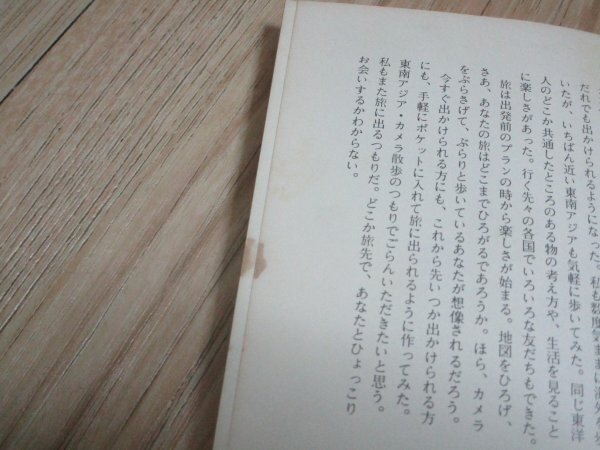 だれでも出かけられるようになった。私も数度気ままに海外を
いたが、いちばん近い東南アジアも気軽に歩いてみた。同じ東洋
人のどこか共通したところのある物の考え方や、生活を見ること
に楽しさがあった。行く先々の各国でいろいろな友だちもできた。
旅は出発前のプランの時から楽しさが始まる。地図をひろげ、
さあ、あなたの旅はどこまでひろがるであろうか。ほら、カメラ
をぶらさげて、ぶらりと歩いているあなたが想像されるだろう。
今すぐ出かけられる方にも、これから先いつか出かけられる方
にも、手軽にポケットに入れて旅に出られるように作ってみた。
東南アジア・カメラ散歩のつもりでごらんいただきたいと思う。
私もまた旅に出るつもりだ。どこか旅先で、あなたとひょっこり
お会いするかわからない。